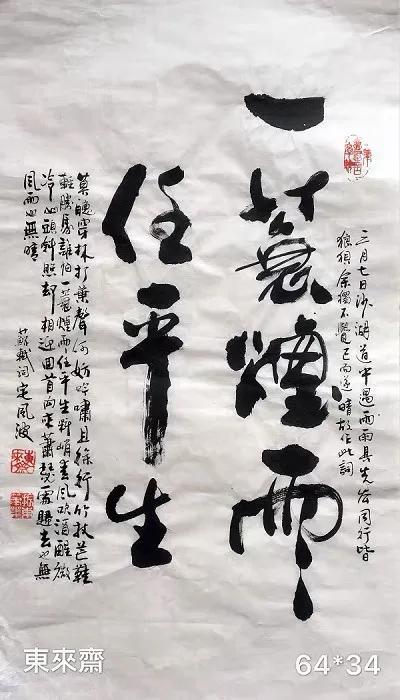 三月七日沙湖道中遇雨雨具先去同行皆
狼狽余獨不覺已而遂晴故作此詞
一蓑煙雨
任平生
莫聽穿林打葉聲何妨吟嘯且徐行竹杖芒鞋
輕勝馬誰怕一蓑煙雨任平生料峭春風吹酒醒微
冷山頭斜照却相迎回首向來蕭瑟處歸去也無
風雨也無晴
蘇軾詞定風波
東來齋
64*34